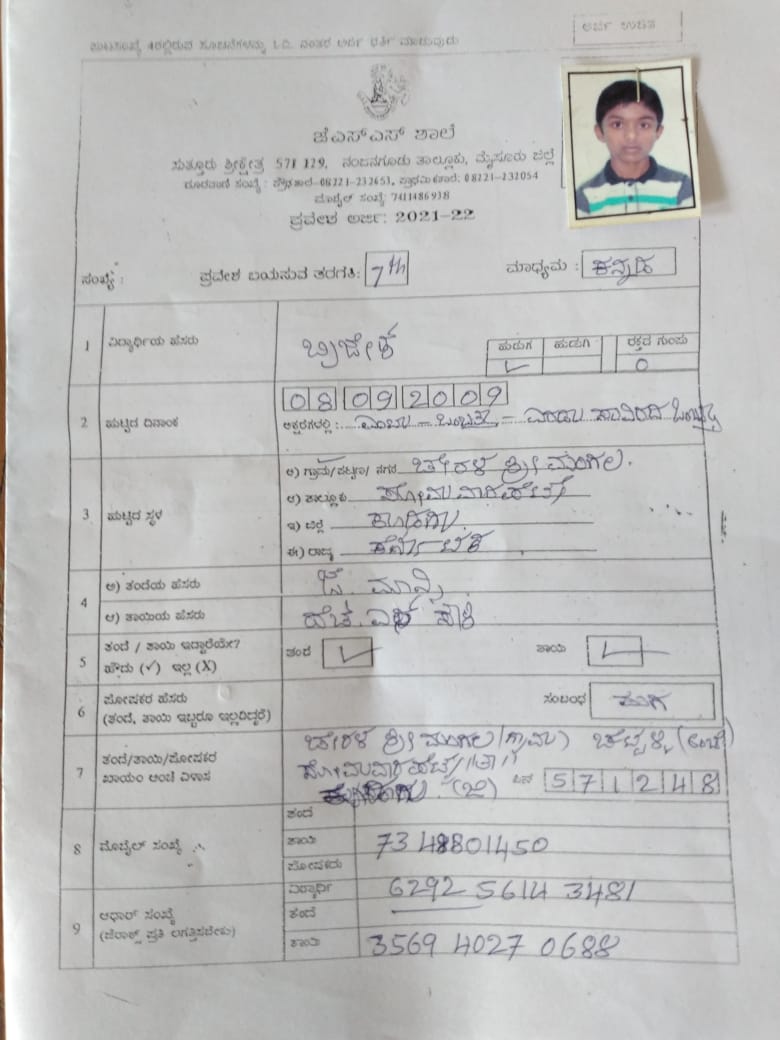 ಪುಟಸಂಖ್ಯೆ 4ರಲ್ಲಿರುವ ಸೂಚನೆಗಳನ್ನು ಓದಿ ನಂತರ ಅರ್ಜಿ ಭರ್ತಿ ಮಾಡುವುದು
ಅರ್ಜಿ ಉಚಿತ
ಜೆಎಸ್ಎಸ್ ಶಾಲೆ
ಸುತ್ತೂರು ಶ್ರೀಕ್ಷೇತ್ರ 571 129, ನಂಜನಗೂಡು ತಾಲ್ಲೂಕು, ಮೈಸೂರು ಜಿಲ್ಲೆ
ದೂರವಾಣಿ ಸಂಖ್ಯೆ : ಪ್ರೌಢಶಾಲೆ-08221-232653, ಪ್ರಾಥಮಿಕಶಾಲೆ: 08221-232054
ಮೊಬೈಲ್ ಸಂಖ್ಯೆ: 7411486938
ಪ್ರವೇಶ ಅರ್ಜಿ: 2021-22
ಸಂಖ್ಯೆ : ಪ್ರವೇಶ ಬಯಸುವ ತರಗತಿ: 7th ಮಾಧ್ಯಮ : ಕನ್ನಡ
1 ವಿದ್ಯಾರ್ಥಿಯ ಹೆಸರು ಹುಡುಗ ಹುಡುಗಿ ರಕ್ತದ ಗುಂಪು
0
2 ಹುಟ್ಟಿದ ದಿನಾಂಕ 08 09 2009
ಅಕ್ಷರಗಳಲ್ಲಿ : ಎಂಟು - ಒಂಬತ್ತು - ಎರಡು ಸಾವಿರದ ಒಂಬತ್ತು
3 ಹುಟ್ಟಿದ ಸ್ಥಳ
ಅ) ಗ್ರಾಮ/ಪಟ್ಟಣ/ ನಗರ ಚೇರಳ ಶ್ರೀಮಂಗಲ.
ಆ) ತಾಲ್ಲೂಕು ಸೋಮವಾರಪೇಟೆ
ಇ) ಜಿಲ್ಲೆ ಕೊಡಗು.
ಈ) ರಾಜ್ಯ ಕರ್ನಾಟಕ
4 ಅ) ತಂದೆಯ ಹೆಸರು
ಆ) ತಾಯಿಯ ಹೆಸರು
5 ತಂದೆ / ತಾಯಿ ಇದ್ದಾರೆಯೇ? ತಂದೆ ✓ ತಾಯಿ ✓
ಹೌದು (✓) ಇಲ್ಲ (X)
6 ಪೋಷಕರ ಹೆಸರು ಸಂಬಂಧ ಮಗ
(ತಂದೆ, ತಾಯಿ ಇಬ್ಬರೂ ಇಲ್ಲದಿದ್ದರೆ)
7 ತಂದೆ/ತಾಯಿ/ಪೋಷಕರ ಚೇರಳ ಶ್ರೀಮಂಗಲ (ಗ್ರಾಮ) ಚೆಟ್ಟಳ್ಳಿ (ಅಂಚೆ)
ಖಾಯಂ ಅಂಚೆ ವಿಳಾಸ ಸೋಮವಾರಪೇಟೆ (ತಾ) ಪಿನ್ 571248
(ಜಿ)
8 ಮೊಬೈಲ್ ಸಂಖ್ಯೆ ತಂದೆ
ತಾಯಿ 7348801450
ಪೋಷಕರು
9 ಆಧಾರ್ ಸಂಖ್ಯೆ ವಿದ್ಯಾರ್ಥಿ 6292 5614 3481
(ಜೆರಾಕ್ಸ್ ಪ್ರತಿ ಲಗತ್ತಿಸಬೇಕು) ತಂದೆ
ತಾಯಿ 3569 4027 0688